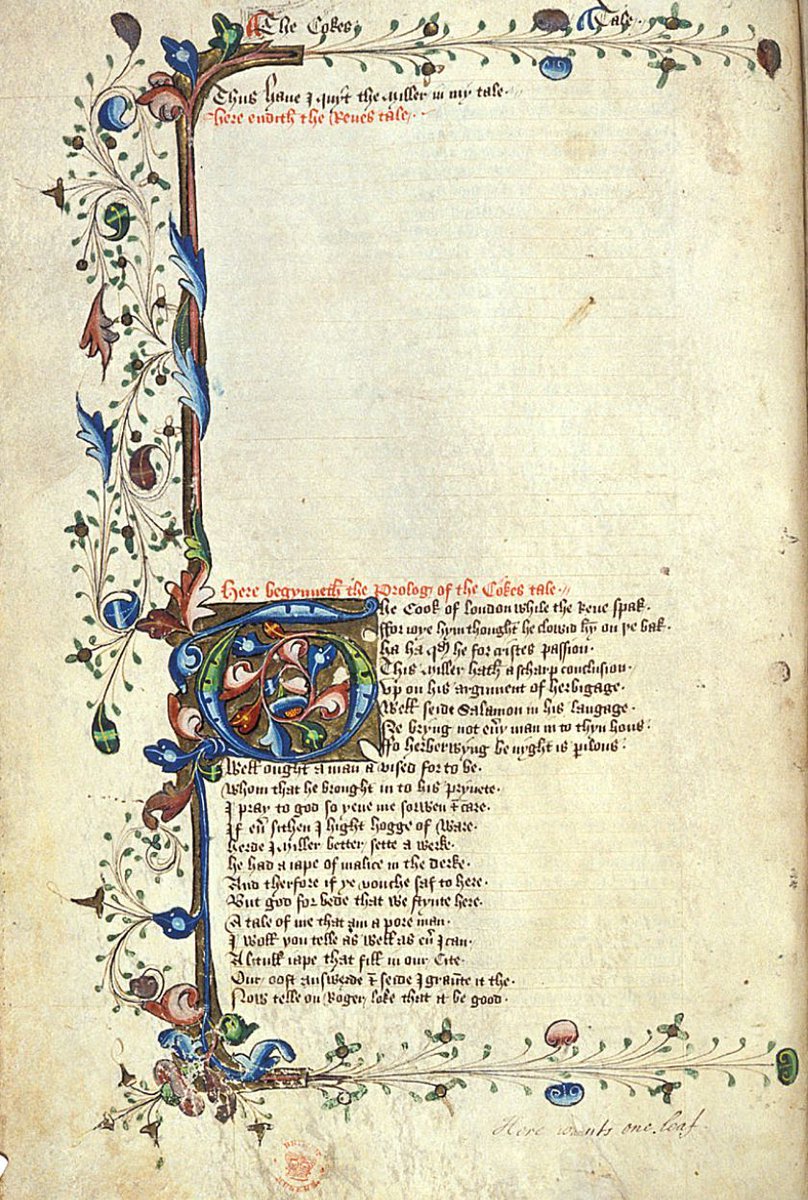 The Cokes Tale
Thus haue I quyt the Miller in my tale
here endith the Reues tale
Here begynneth the Prolog of the Cokes tale
The Cook of London while the Reue spak
ffor ioye hym thought he clowid hym on þe bak
ha ha qd he for cristes passion
This Miller hath a scharp conclusion
Vp on his argument of herbigage
Well seide Salamon in his langage
Ne bryng not euy man in to thyn hous
ffo herberwyng be nyght is pilous
Well ought a man a vised for to be
Whom that he brought in to his pryuete
I pray to god so yeue me sorwen & care
If eu sithen I hight hogge of Ware
herde I Miller better sette a werke
he had a iape of malice in the derke
And therfore if ye vouche saf to here
But god for bede that we stynte here
A tale of me that am a pore man
I woll you telle as well as eu I can
A litull iape that fill in our Cite
Our oost answerde & seide I graute it the
Now telle on Roger loke that it be good
Here wants one leaf